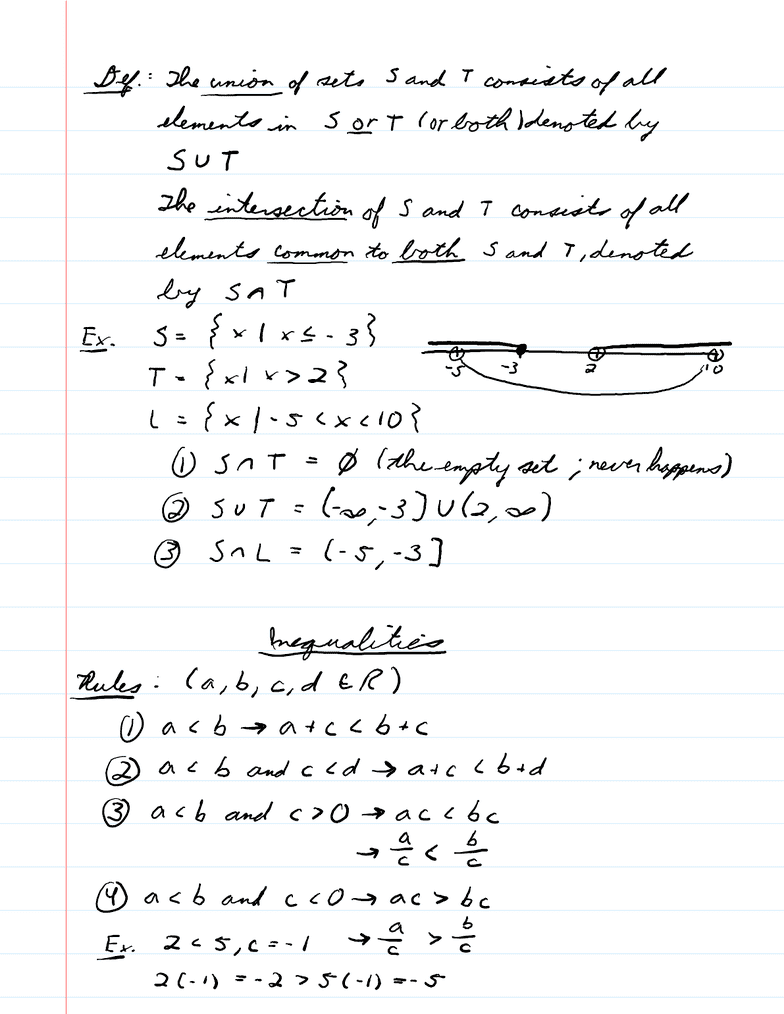 Def.: The union of sets S and T consists of all
elements in S or T (or both) denoted by
S ∪ T
The intersection of S and T consists of all
elements common to both S and T, denoted
by S ∩ T
Ex. S = {x | x ≤ -3}
-5 -3 2 10
T = {x | x > 2}
L = {x | -5 < x < 10}
① S ∩ T = ∅ (the empty set ; never happens)
② S ∪ T = (-∞, -3] ∪ (2, ∞)
③ S ∩ L = (-5, -3]
Inequalities
Rules : (a, b, c, d ∈ R)
① a < b → a + c < b + c
② a < b and c < d → a + c < b + d
③ a < b and c > 0 → ac < bc
→ a/c < b/c
④ a < b and c < 0 → ac > bc
Ex. 2 < 5, c = -1 → a/c > b/c
2(-1) = -2 > 5(-1) = -5